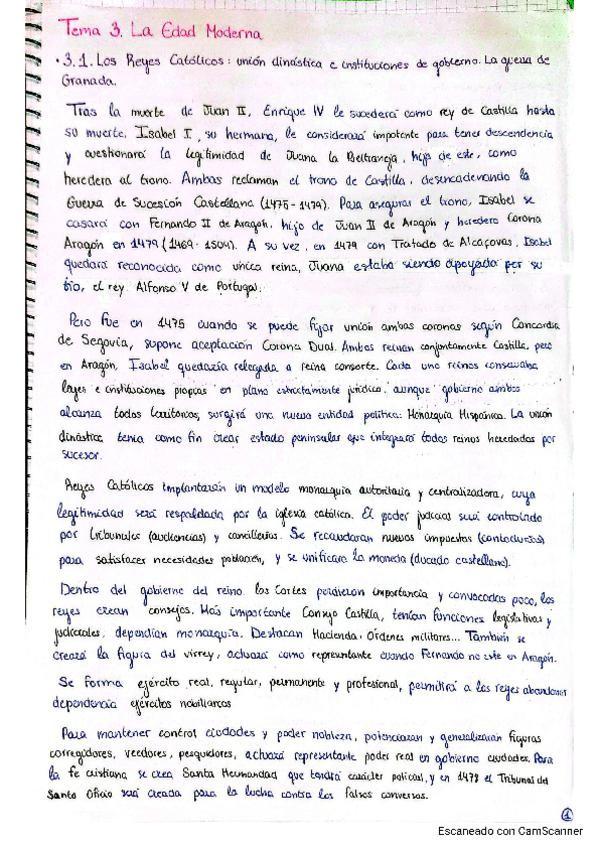 Tema 3. La Edad Moderna
· 3.1. Los Reyes Católicos: unión dinástica e instituciones de gobierno. La guerra de
Granada.
Tras la muerte de Juan II, Enrique IV le sucederá como rey de Castilla hasta
su muerte. Isabel I, su hermana, le considerará impotente para tener descendencia
y cuestionará la legitimidad de Juana la Beltraneja, hija de este, como
heredera al trono. Ambas reclaman el trono de Castilla, desencadenando la
Guerra de Sucesión Castellana (1475-1479). Para asegurar el trono, Isabel se
casará con Fernando II de Aragón, hijo de Juan II de Aragón y heredero Corona
Aragón en 1479 (1469-1504). A su vez, en 1479 con Tratado de Alcaçovas, Isabel
quedará reconocida como única reina, Juana estaba siendo apoyada por su
tío, el rey Alfonso V de Portugal.
Pero fue en 1475 cuando se puede fijar unión ambas coronas según Concordia
de Segovia, supone aceptación Corona Dual. Ambos reinan conjuntamente Castilla, pero
en Aragón, Isabel quedaría relegada a reina consorte. Cada uno reinos conservaba
leyes e instituciones propias en plano estrictamente jurídico, aunque gobierno ambos
alcanza todos territorios, surgirá una nueva entidad política: Monarquía Hispánica. La unión
dinástica tenía como fin crear estado peninsular que integrara todos reinos heredados por
sucesor.
Reyes Católicos implantarán un modelo monarquía autoritaria y centralizadora, cuya
legitimidad será respaldada por la iglesia católica. El poder judicial será controlado
por tribunales (audiencias) y cancillerías. Se recaudarán nuevos impuestos (contadurías)
para satisfacer necesidades población, y se unificará la moneda (ducado castellano).
Dentro del gobierno del reino, las Cortes perdieron importancia y convocadas poco, los
reyes crean consejos. Más importante Consejo Castilla, tenían funciones legislativas y
judiciales, dependían monarquía. Destacan Hacienda, Ordenes militares... También se
creará la figura del virrey, actuará como representante cuando Fernando no esté en Aragón.
Se forma ejército real, regular, permanente y profesional, permitirá a los reyes abandonar
dependencia ejércitos nobiliarios
Para mantener control ciudades y poder nobleza, potenciaran y generalizaran figuras
corregidores, veedores, pesquidores, actuará representante poder real en gobierno ciudades. Para
la fe cristiana se crea Santa Hermandad que tendrá carácter policial, y en 1478 el Tribunal del
Santo Oficio será creada para la lucha contra los falsos conversos.
1
Escaneado con CamScanner